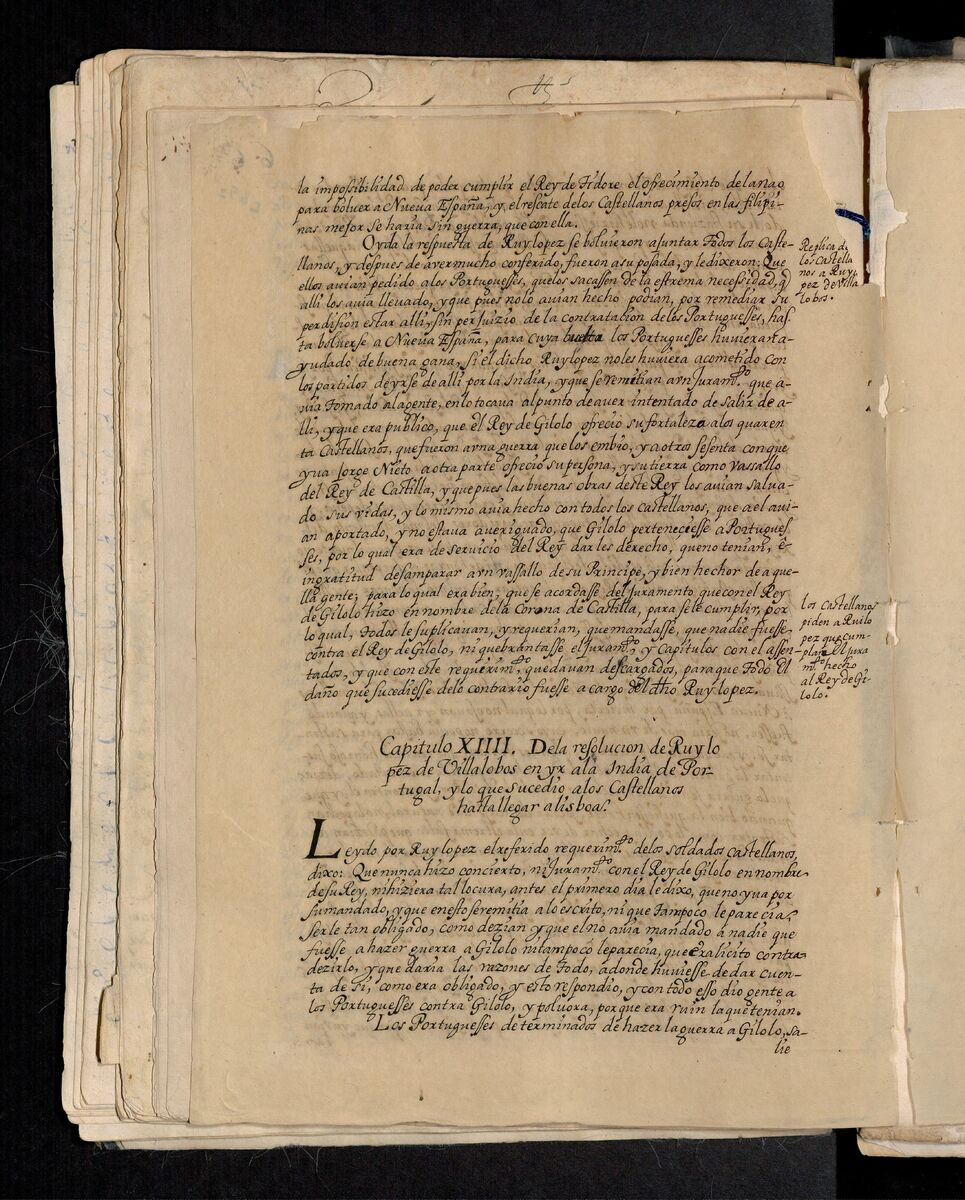 la impossibilidad de poder cumplir el Rey de Tidore el ofrecimiento de la nao
para bolver a Nueva España, y el rescate delos Castellanos presos en las filipi-
nas mejor se haria sin guerra, que con ella.
Oyda la respuesta de Ruylopez se bolvieron ajuntar Todos los Caste-
llanos, y despues de aver mucho conferido, fueron a su posada, y le dixeron: Que
ellos avian pedido alos Portuguesses, quelos sacassen de la estrema necessidad, q̃
alli los avia llevado, y que pues nolo avian hecho podian, por remediar su
perdision estar alli, sin perjuizio de la contratacion delos Portuguesses, has-
ta bolverse a Nueva España, para cuya buelta los Portuguesses huvieran a-
yudado de buena gana, si el dicho Ruylopez noles huviera acometido con
los partidos de yrse de alli por la India, y que se remetian a vn Juram.to que a-
via Tomado a la gente, en lo tocava al punto de aver intentado de salir de a-
lli, y que era publico, que el Rey de Gilolo ofrecio su fortaleza a los quaren
ta Castellanos, que fueron a vna guerra que los embio, y a otros sesenta con que
yva Jorge Nieto a otra parte ofrecio su persona, y su tierra como vassallo
del Rey de Castilla, y que pues las buenas obras deste Rey los avian salva-
do sus vidas, y lo mismo avia hecho con todos los castellanos, que a el avi-
an aportado, y no estava averiguado, que Gilolo perteneciesse a Portugues-
ses, por lo qual era de servicio del Rey dar les derecho, que no tenian, ê
ingratitud desamparar a vn vassallo de su Principe, y bien hechor de aque-
lla gente; para lo qual era bien, que se acordasse del Juramento que con el Rey
de Gilolo hizo en nombre de la Corona de Castilla, para sele cumplir, por
lo qual, Todos le suplicavan, y requerian, que mandasse, que nadie fuesse
contra el Rey de Gilolo, ni quebrantasse el juram.to, y Capitulos con el assen-
tados, y que con este requerim.to quedavan descargados, para que Todo el
daño que sucediesse delo contrario fuesse a cargo del dho Ruylopez.
Replica de
los Castella
nos a Ruy
pez de Villa
lobos.
los Castellanos
piden a Ruilo
pez que cum-
pla el Jura
m.to hecho
al Rey de Gi-
lolo.
Capitulo XIIII. Dela resolucion de Ruylo
pez de Villalobos en yr ala India de Por-
tugal, y lo que sucedio alos Castellanos
hasta llegar a lisboa.
Leydo por Ruylopez el referido requerim.to delos soldados castellanos,
dixo: Que nunca hizo concierto, ni Juram.to con el Rey de Gilolo en nombre
de su Rey, ni hiziera tal locura, antes el primero dia le dixo, que no yva por
su mandado, y que en esto se remitia a lo escrito, ni que Tampoco le parecia
serle tan obligado, como dezian y que el no avia mandado a nadie que
fuesse a hazer guerra a Gilolo ni tampoco le parecia, que era licito contra-
dezirlo, y que daria las razones de Todo, adonde huviesse de dar cuen-
ta de si, como era obligado, y esto respondio, y con todo esso dio gente a
los Portuguesses contra Gilolo, y polvora, porque era ruin la que tenian.
Los Portuguesses determinados de hazer la guerra a Gilolo, sa-
lie